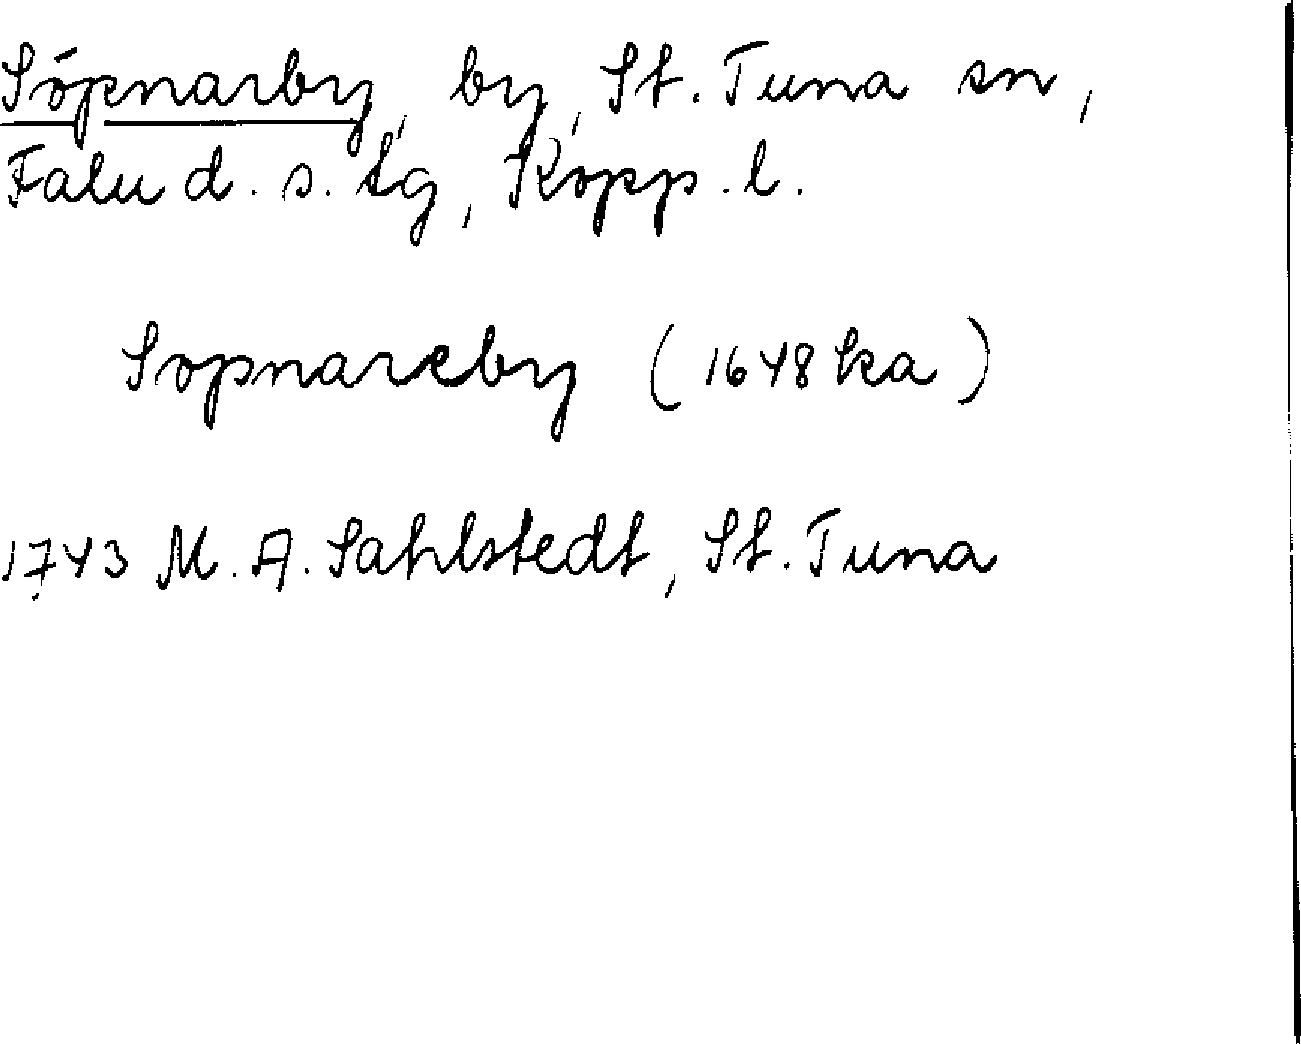 Sópnarby, by, St. Tuna sn,
Falu d. s. tg, Kopp. l.
Sopnareby (1648 ka)
1743 M. A. Sahlstedt, St. Tuna